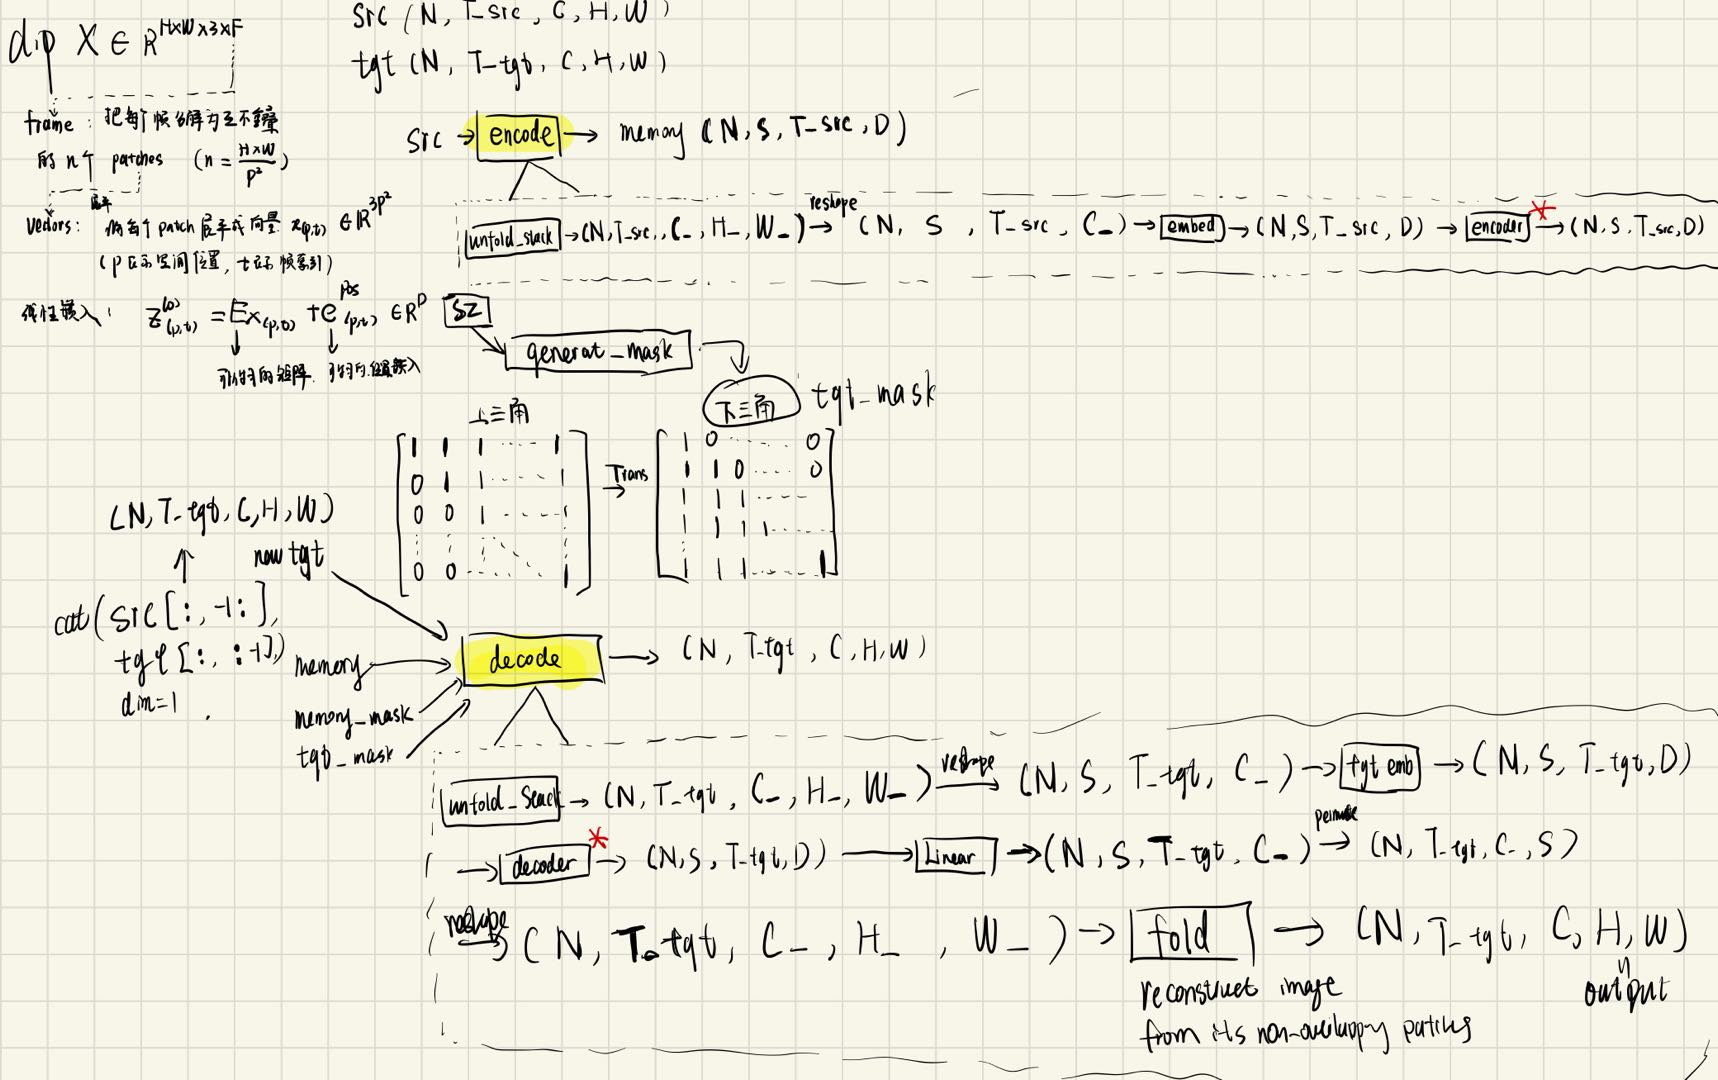 X ∈ R^{H×W×3×F}
src (N, T_src, C, H, W)
tgt (N, T_tgt, C, H, W)
frame: 把每个帧分解为互不重叠
的 n个 patches (n = \frac{H×W}{P^2})
src → encode → memory (N, S, T_src, D)
展平
vectors: 每个 patch 展平成向量 x_{(p,t)} ∈ R^{3P^2}
(p表示空间位置, t表示帧索引)
unfold_stack → (N, T_src, C_, H_, W_) reshape → (N, S, T_src, C_) → embed → (N, S, T_src, D) → encoder * → (N, S, T_src, D)
线性嵌入: z^{(0)}_{(p,t)} = E x_{(p,t)} + e^{pos}_{(p,t)} ∈ R^D
可学习的矩阵. 可学习位置嵌入
SZ
generat_mask
上三角
下三角 tgt_mask
1 1 1 ---- 1
0 1 1 ---- 1
0 0 1 ---- 1
0 0 ---- 1
Trans
1 0 ---- 0
1 1 0 ---- 0
1 1 1 ----
1 1 1 1 ----
1 1 1 ---- 1
(N, T_tgt, C, H, W)
new tgt
cat(src[:, -1:],
tgt[:, :-1],)
dim=1
memory
memory_mask
tgt_mask
decode → (N, T_tgt, C, H, W)
→ (N, T_tgt, C_, H_, W_) reshape → (N, S, T_tgt, C_) → tgt emb → (N, S, T_tgt, D)
→ decoder * → (N, S, T_tgt, D) → Linear → (N, S, T_tgt, C_) permute → (N, T_tgt, C_, S)
reshape → (N, T_tgt, C_, H_, W_) → fold → (N, T_tgt, C, H, W)
reconstruct image
from its non-overlappy patches
output